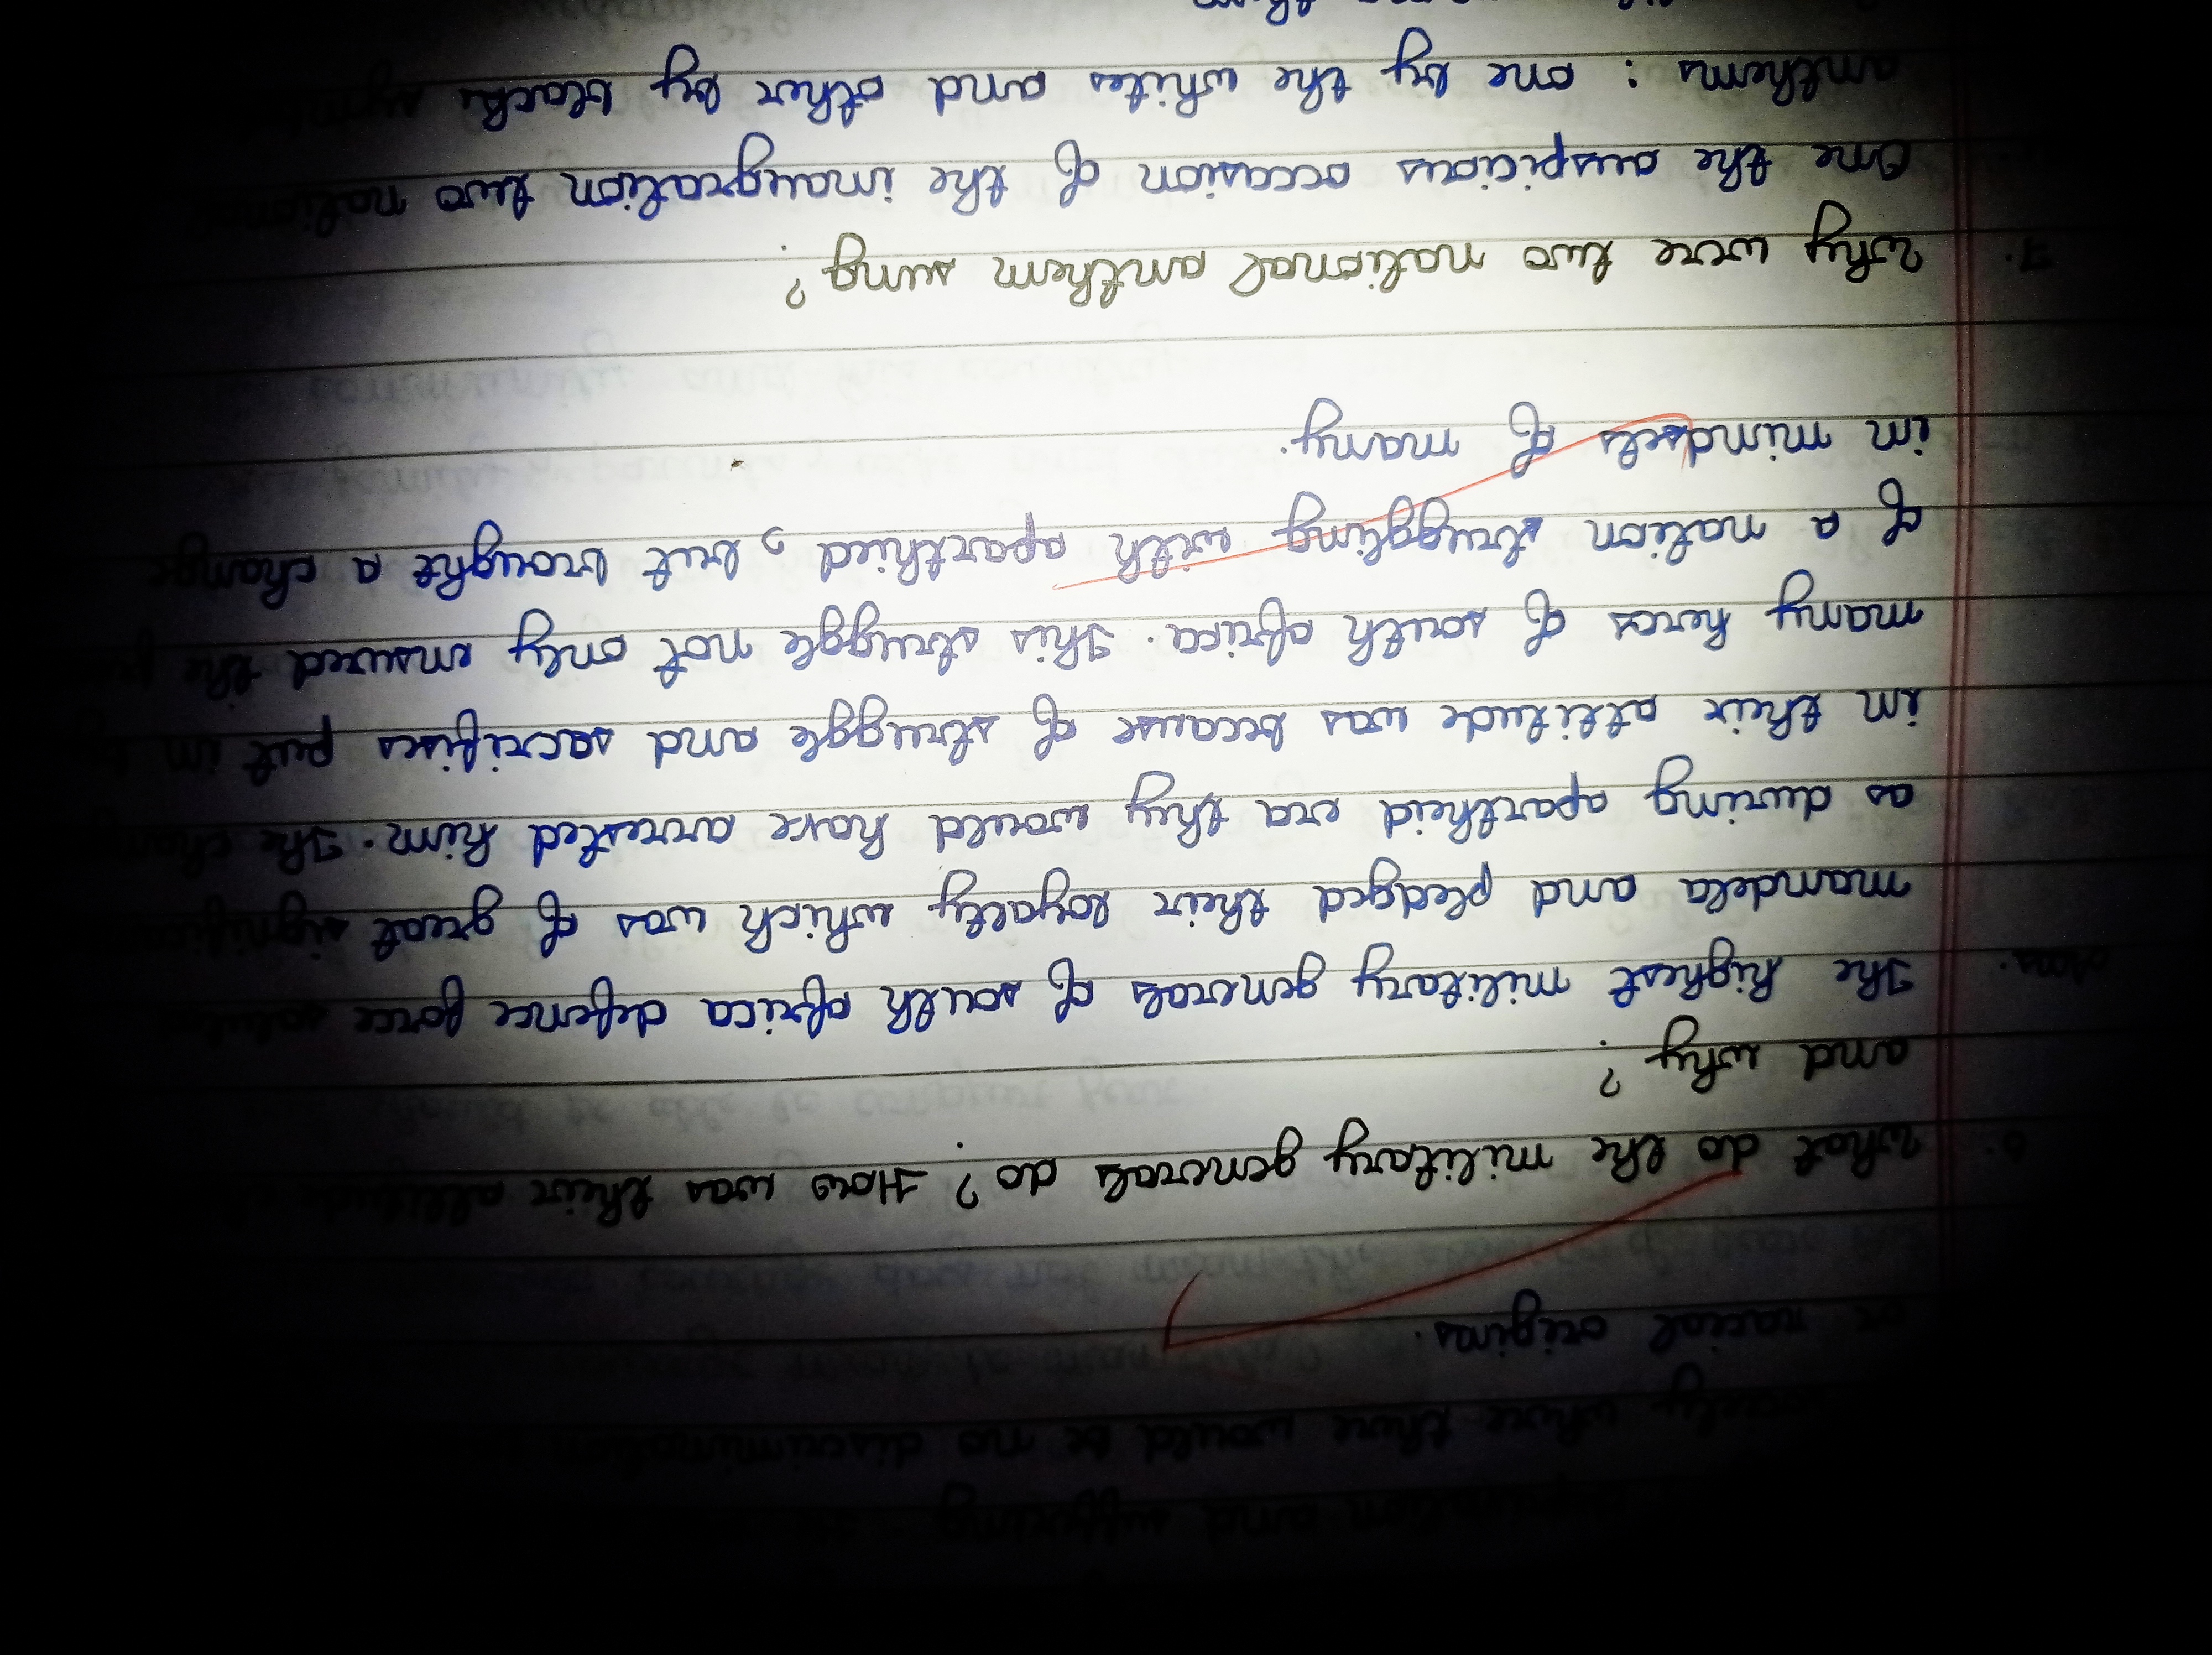 and suffering.
where there would be no discrimination
racial origins.
6. What do the military generals do? How was their attitude
and why?
Ans. The highest military generals of south africa defence force saluted
mandela and pledged their loyalty which was of great
as during apartheid era they would have arrested him. The
in their attitude was because of struggle and sacrifises put in
many heros of south africa. This struggle not only ensured the
of a nation struggling with aparthied, but brought a change
in mindsets of many.
7. Why were two national anthem sung?
One the auspicious occasion of the inaugration two national
anthems : one by the whites and other by blacks